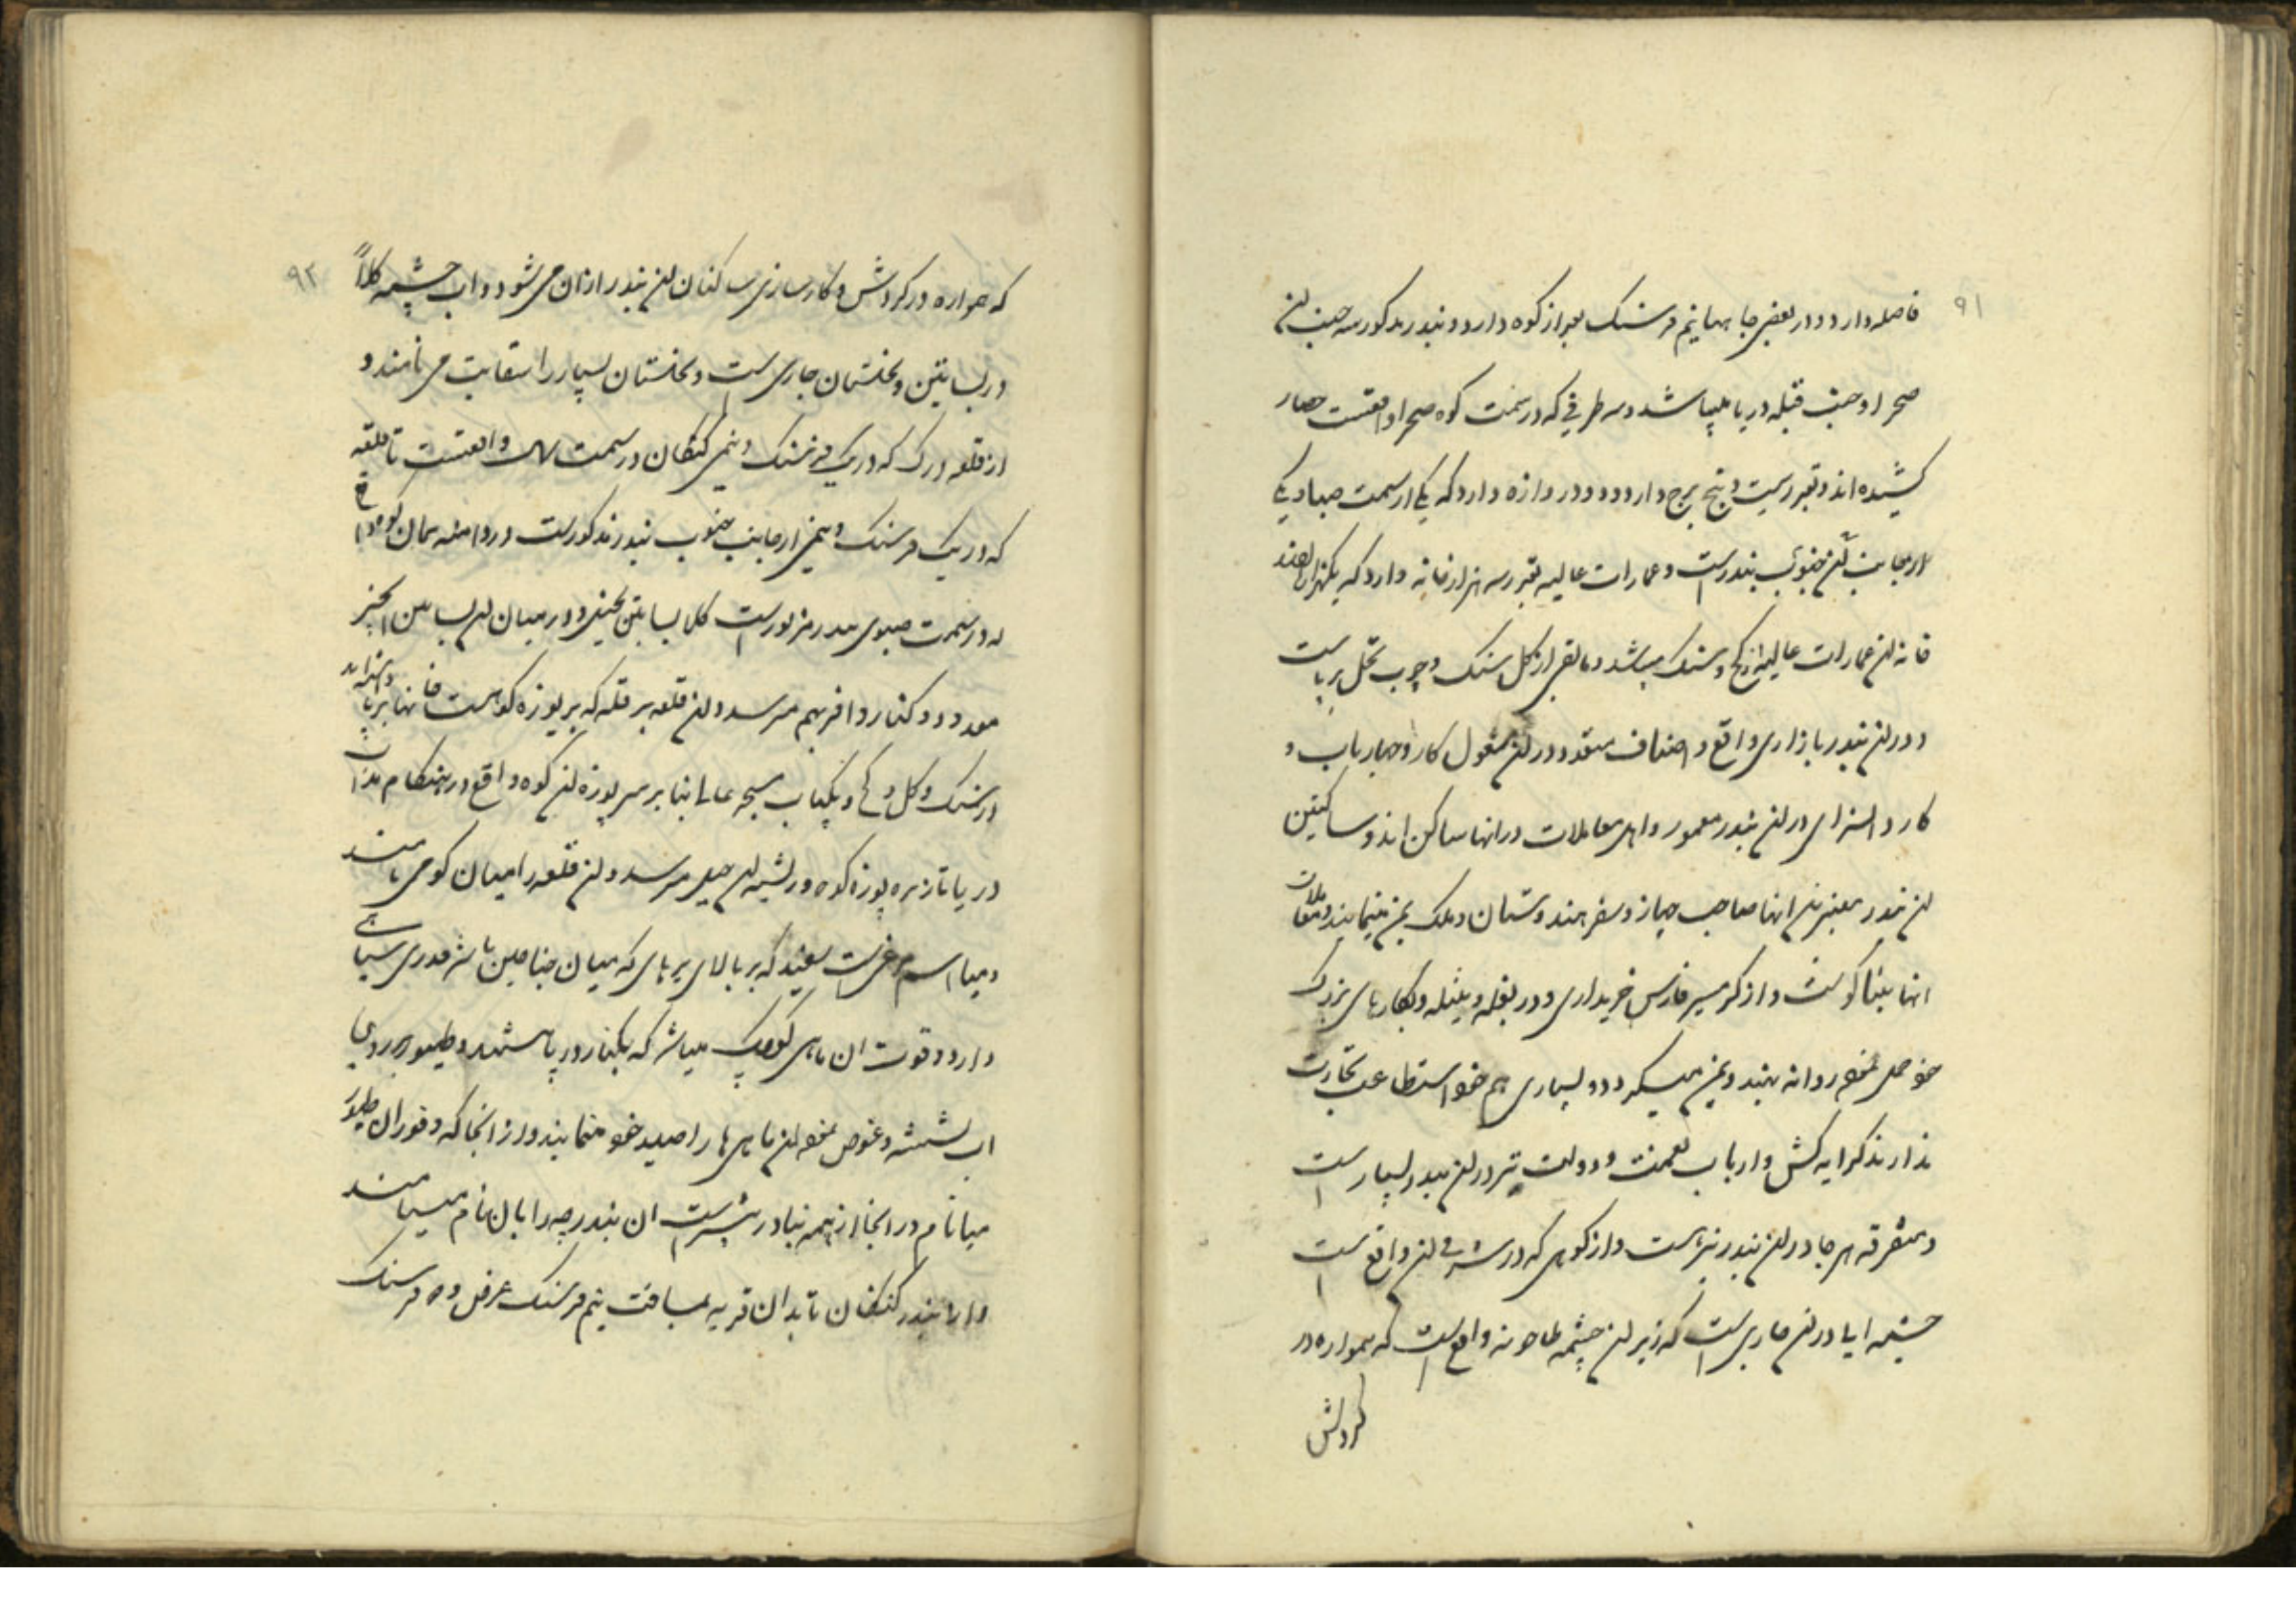 ۹۱
فاصله دارد و در بعضی جاها نیم فرسنک بعد از کوه دارد و بندر مذکور سه جنب ان
صحرا و جنب قبله دریا میباشد و سه طرفی که در سمت کوه صحرا واقعست حصار
کشیده اند و بقدر بیست و پنج برج دارد و دو دروازه دارد که یکی از سمت صبا و یکی
از جانب جنوب بندر است و عمارات عالیه بقدر سه هزار خانه دارد که یکهزار و پانصد
خانه ان عمارات عالیه از کج و سنک میباشد و مابقی از کل و سنک و چوب نخل برپاست
و در ان بندر بازاری واقع و اصناف متعدد در ان مشغول کار و چهار باب و
کاروانسرای در ان بندر معمور و اهل معاملات در انها ساکن اند و ساکنین
ان بندر معتبرین انها صاحب جهاز و سفر هندوستان و ملک یمن مینمایند و معاملات
انها تنباکو است و از کرمسیر فارس خریداری و در بغله و بتیله و بکارهای بزرک
خود حمل نموده روانه هند و یمن میکردد و بسیاری هم خود استطاعت تجارت
ندارند کرایه کش و ارباب نعمت و دولت نیز در ان بندر بسیار است
و متفرقه هر جا در ان بندر نیز هست و از کوهی که در شرقی ان واقع است
چشمه ابی در ان جاری است که زیر ان چشمه طاحونه واقع است که همواره در
کردش
۹۲
که همواره در کردش و کارسازی ساکنان ان بندر از ان می شود و اب چشمه کلاً
در بساتین و نخلستان جاری است و نخلستان بسیار را سقایت می نمایند و
از قلعه ورک که در یک فرسنک و نیمی کنکان در سمت واقعست تا قلعه
که در یک فرسنک و نیمی از جانب جنوب بندر مذکور است و در دامنه همان کوه واقع
در سمت جنوبی بندر مزبور است کلا بساتین نخیل و در میان ان بساتین انجیر
و کنار وافر بهم میرسد و ان قلعه بر قله که بر پوزه کوه است خانها برپا
از سنک و کل و کج و یکباب مسجد عالی بنا بر سر پوزه ان کوه واقع و در هنکام مد اب
دریا تا نزد پوزه کوه و ریشه ان جبل میرسد و ان قلعه را میان کوه می نامند
و میا اسم مرغی است سفید که بر بالای پرهای که میان جناحین باشد قدری سیاهی
دارد و قوت ان ماهی کوچک میباشد که بکنار دریا و طیور بر روی
اب نشسته و غوص نموده ان ماهی ها را صید خود مینمایند و از انجا که وفور ان طیور
میا نام در انجا از همه بنادر بیشتر است ان بندرچه را بان نام مینامند
و از بندر کنکان تا بدان قریه بمسافت نیم فرسنک عرض و دو فرسنک